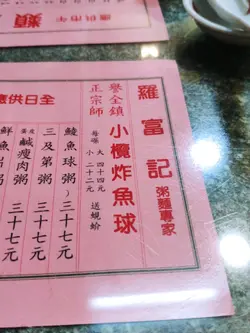 羅富記
粥麵專家
小欖炸魚球
譽全鎮
正宗師
每碟 大 四十四元
小 二十二元
送蜆蚧
全日供應
鯪魚球粥
三十七元
三及第粥
三十七元
蛋皮
鹹瘦肉粥
三十七元
三十七元